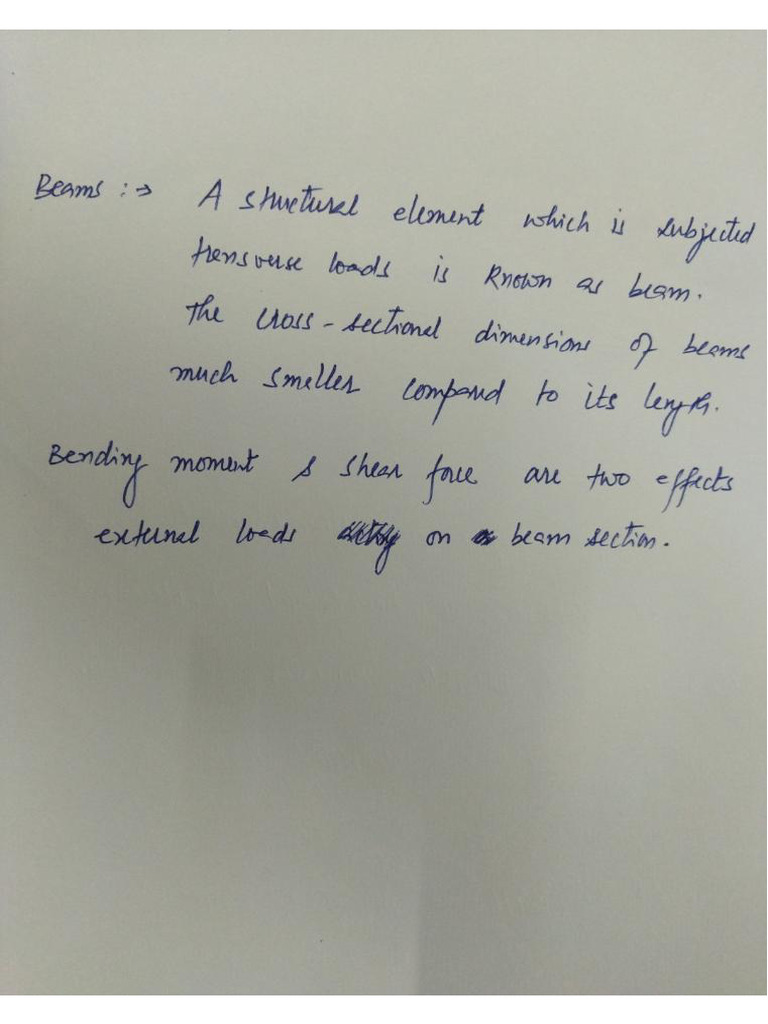 Beams :→ A structural element which is subjected
transverse loads is known as beam.
The cross-sectional dimensions of beams
much smaller compared to its length.
Bending moment & shear force are two effects
external loads on beam section.